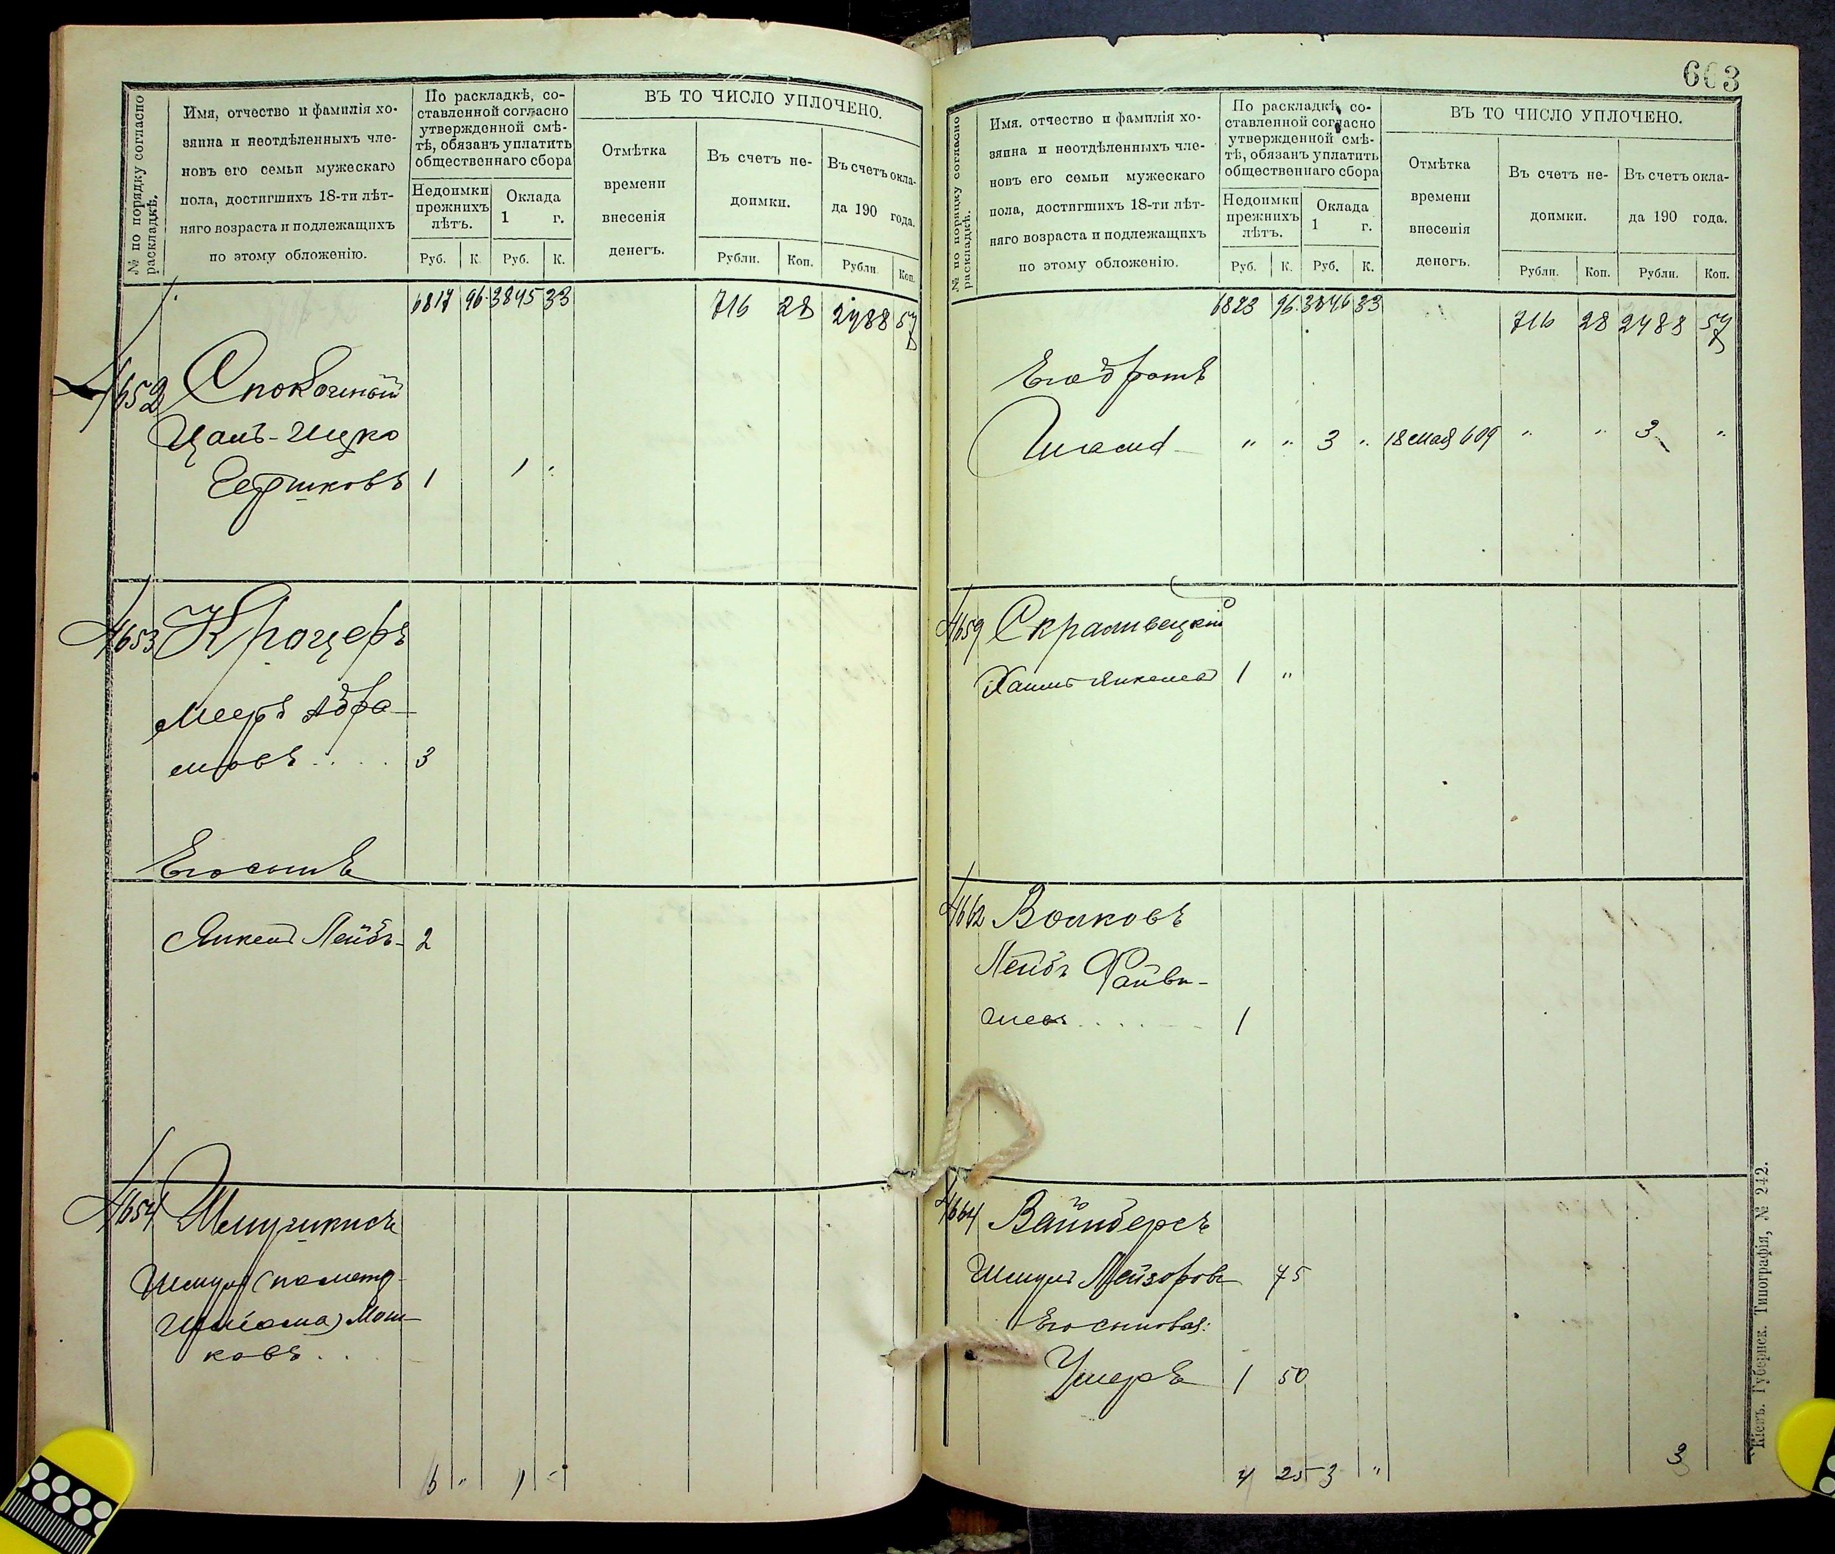 № по порядку согласно раскладкѣ.
Имя, отчество и фамилія хо-
зяина и неотдѣленныхъ чле-
новъ его семьи мужескаго
пола, достигшихъ 18-ти лѣт-
няго возраста и подлежащихъ
по этому обложенію.
По раскладкѣ, со-
ставленной согласно
утвержденной смѣ-
тѣ, обязанъ уплатить
общественнаго сбора
Недоимки
прежнихъ
лѣтъ.
Оклада
1 г.
Руб. К. Руб. К.
ВЪ ТО ЧИСЛО УПЛОЧЕНО.
Отмѣтка
времени
внесенія
денегъ.
Въ счетъ не-
доимки.
Въ счетъ окла-
да 190 года.
Рубли. Коп. Рубли. Коп.
6817 96 3845 33 716 28 2488 57
4652 Спокойный
Цаль-Ицко
Гершковъ 1 1 "
4653 Кроцеръ
Мееръ Абра-
мовъ . . . . 3
Его сынъ
Янкель Лейбъ - 2
4654
Шмуль
Мош-
ковъ . .
6 " 1 "
663
№ по порядку согласно раскладкѣ.
Имя, отчество и фамилія хо-
зяина и неотдѣленныхъ чле-
новъ его семьи мужескаго
пола, достигшихъ 18-ти лѣт-
няго возраста и подлежащихъ
по этому обложенію.
По раскладкѣ, со-
ставленной согласно
утвержденной смѣ-
тѣ, обязанъ уплатить
общественнаго сбора
Недоимки
прежнихъ
лѣтъ.
Оклада
1 г.
Руб. К. Руб. К.
ВЪ ТО ЧИСЛО УПЛОЧЕНО.
Отмѣтка
времени
внесенія
денегъ.
Въ счетъ не-
доимки.
Въ счетъ окла-
да 190 года.
Рубли. Коп. Рубли. Коп.
6823 96 3846 33 716 28 2488 57
Его братъ
" " 3 " 18 мая 609 " " 3 "
4659 Скраливецкій
Хаимъ Янкелевъ 1 "
4662 Волковъ
Лейбъ Файви-
шевъ . . . . 1
4664 Вайнбергъ
Шмуль Лейзоровъ 75
Его сыновья:
Ушеръ 1 50
4 25 3 " 3
Кіевъ. Губернск. Типографія, № 242.